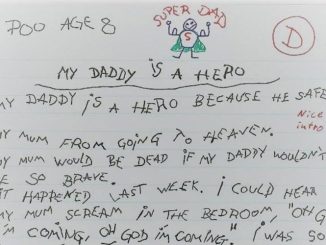 POO AGE 8
SUPER DAD
S
D
MY DADDY iS A HERO
MY DADDY iS A HERO BECAUSE HE SAFE
Nice
intro
MY MUM FROM GOiNG TO HEAVEN.
MY MUM WOULD BE DEAD iF MY DADDY WOULDN'T
BE SO BRAVE.
iT HAPPENED LAST WEEK. i COULD HEAR
MY MUM SCREAM iN THE BEDROOM, "OH G
i'M COMiNG, OH GOD i'M COMiNG." i WAS SO